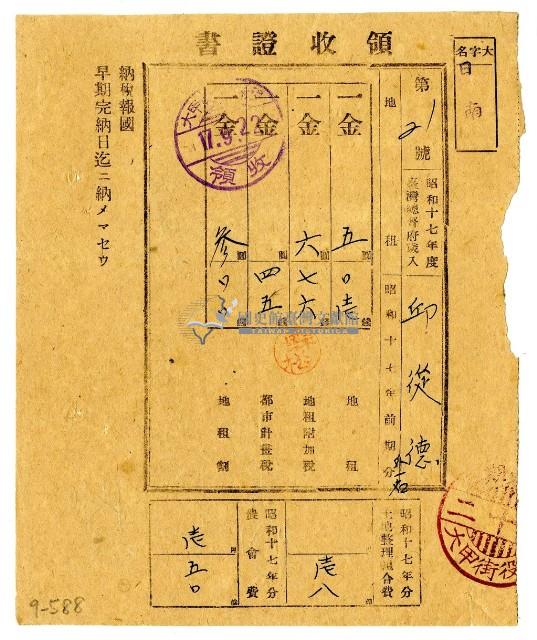 領收證書
大字名
日南
第21號
昭和十七年度
臺灣總督府歲入
邱從德
外
地租
昭和十七年前期分
一金 五圓〇壱錢 地租
一金 六圓七六錢 地租附加稅
一金 圓四五錢 都市計畫稅
一金 參圓 錢 地租割
17.9.22
領收
納期報國
早期完納日迄ニ納メマセウ
國史館臺灣文獻館
TAIWAN HISTORICA
昭和十七年分
土地整理組合費
壱八
昭和十七年分
農會費
壱五〇
大甲街役
9-588